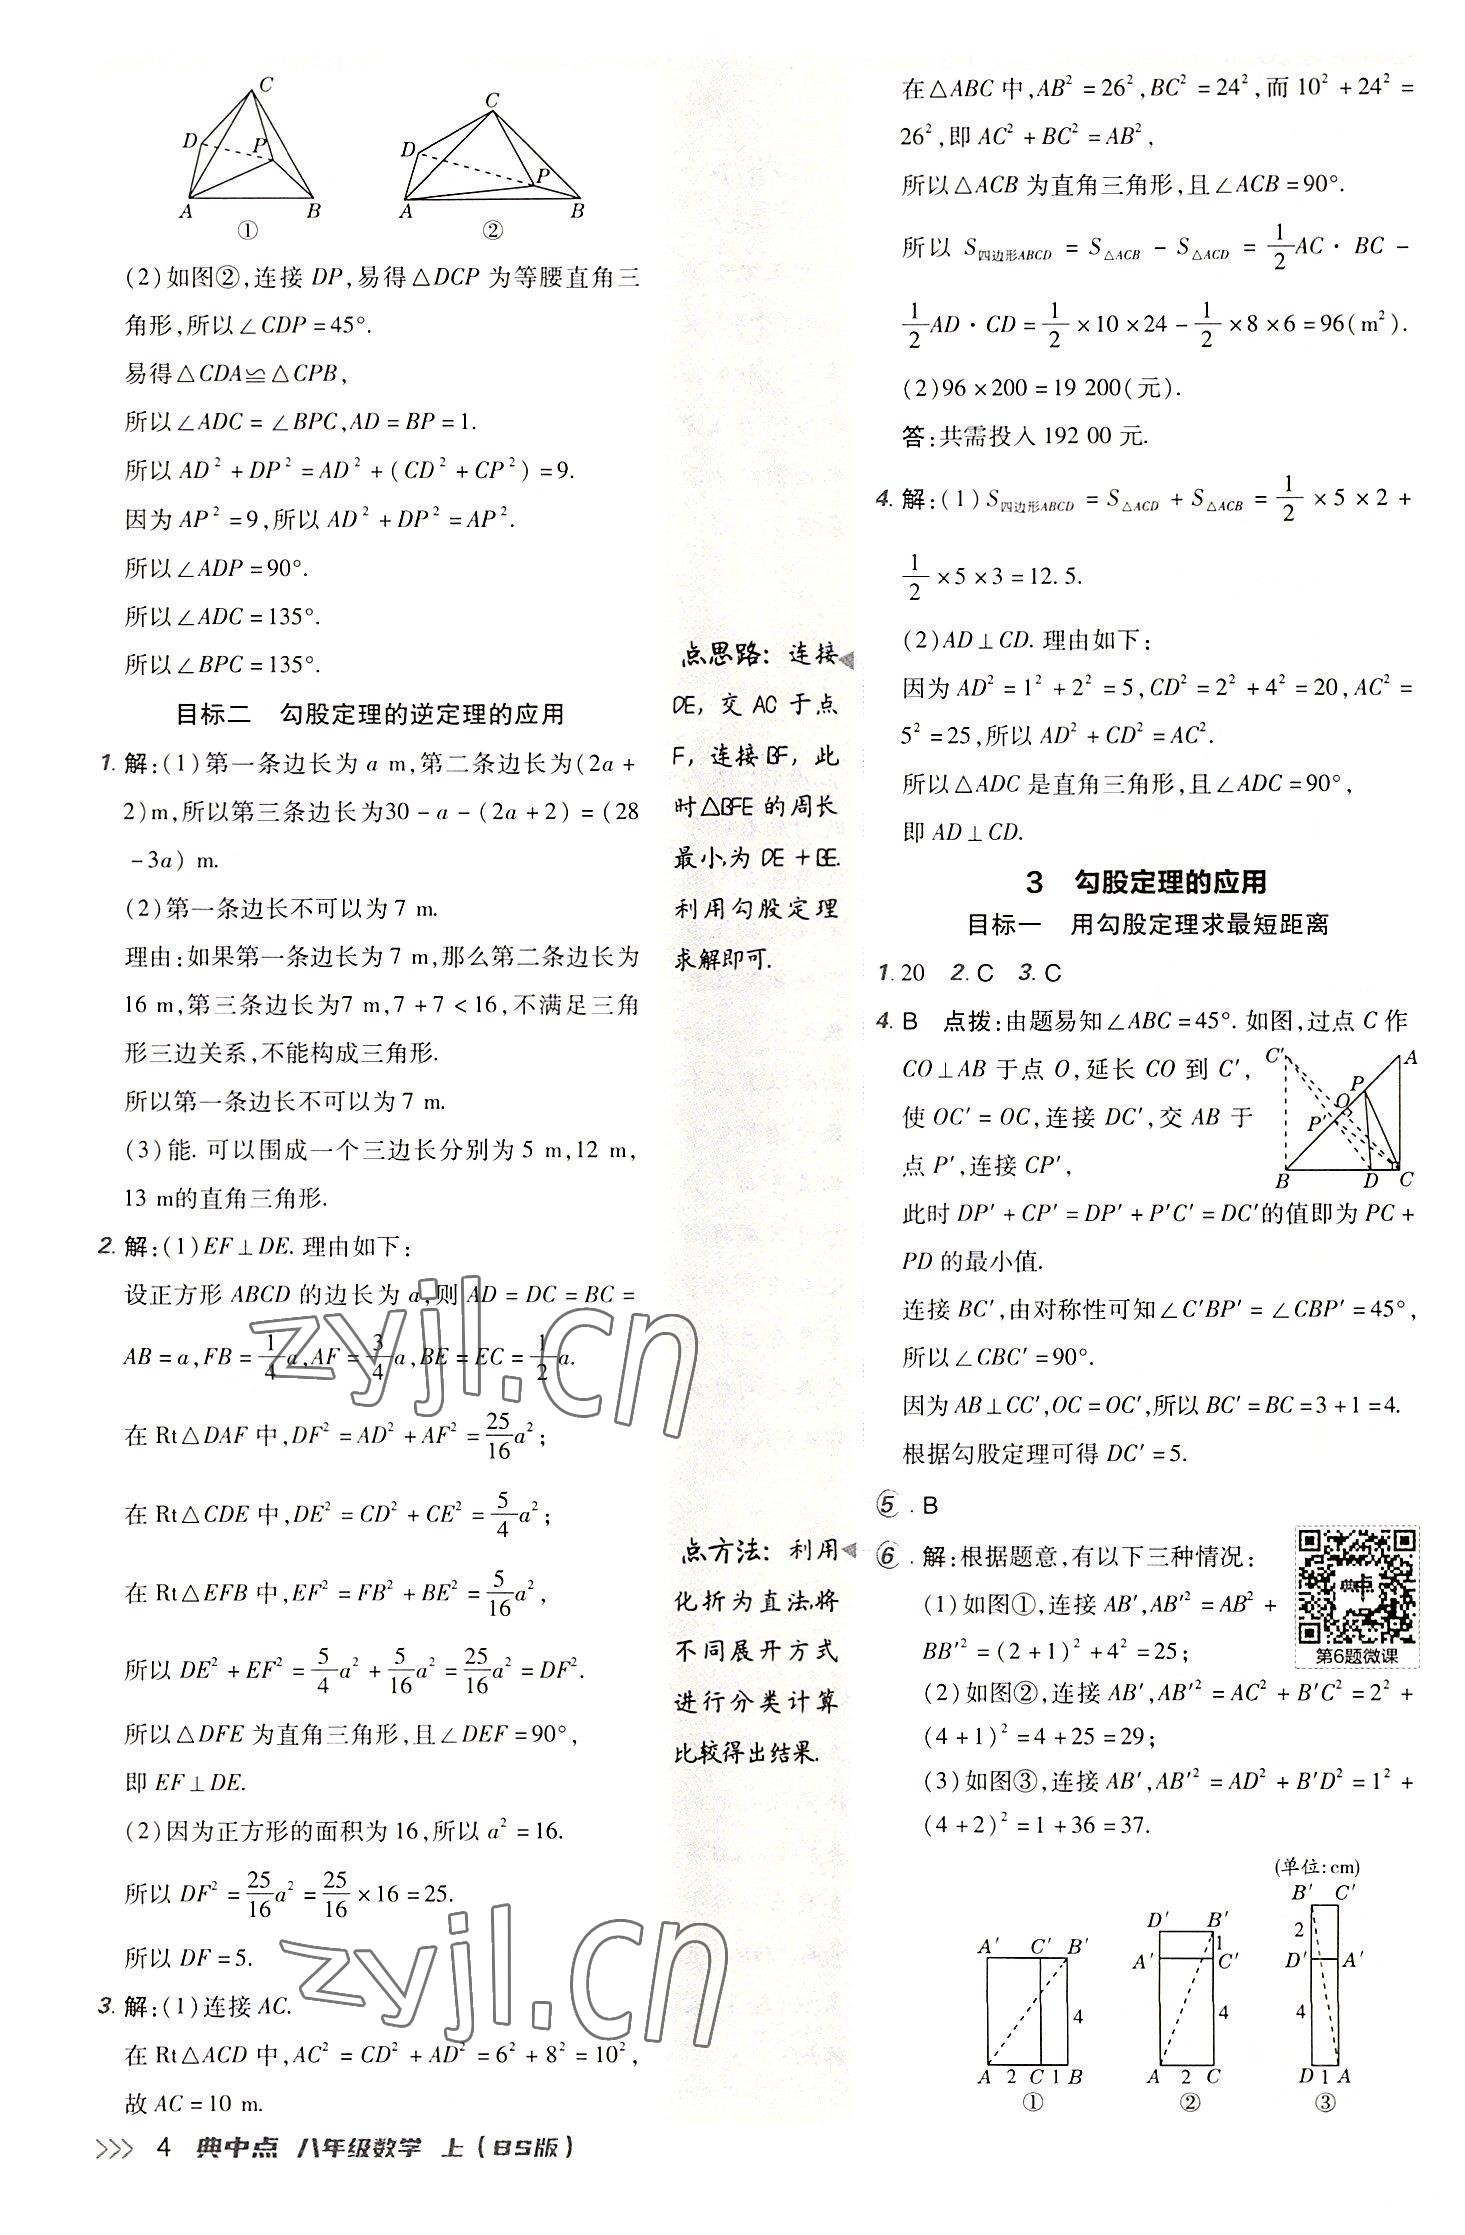 C
D
P
A
B
①
C
D
P
A
B
②
(2)如图②,连接 DP,易得△DCP 为等腰直角三
角形,所以∠CDP=45°.
易得△CDA≌△CPB,
所以∠ADC=∠BPC,AD=BP=1.
所以 AD²+DP²=AD²+(CD²+CP²)=9.
因为 AP²=9,所以 AD²+DP²=AP².
所以∠ADP=90°.
所以∠ADC=135°.
所以∠BPC=135°.
目标二 勾股定理的逆定理的应用
1. 解:(1)第一条边长为 a m,第二条边长为(2a+
2)m,所以第三条边长为30-a-(2a+2)=(28
-3a) m.
(2)第一条边长不可以为 7 m.
理由:如果第一条边长为 7 m,那么第二条边长为
16 m,第三条边长为7 m,7+7<16,不满足三角
形三边关系,不能构成三角形.
所以第一条边长不可以为 7 m.
(3)能. 可以围成一个三边长分别为 5 m,12 m,
13 m的直角三角形.
2. 解:(1)EF⊥DE. 理由如下:
设正方形 ABCD 的边长为 a,则 AD=DC=BC=
AB=a,FB=1/4 a,AF=3/4 a,BE=EC=1/2 a.
在 Rt△DAF 中,DF²=AD²+AF²=25/16 a²;
在 Rt△CDE 中,DE²=CD²+CE²=5/4 a²;
在 Rt△EFB 中,EF²=FB²+BE²=5/16 a²,
所以 DE²+EF²=5/4 a²+5/16 a²=25/16 a²=DF².
所以△DFE 为直角三角形,且∠DEF=90°,
即 EF⊥DE.
(2)因为正方形的面积为 16,所以 a²=16.
所以 DF²=25/16 a²=25/16×16=25.
所以 DF=5.
3. 解:(1)连接 AC.
在 Rt△ACD 中,AC²=CD²+AD²=6²+8²=10²,
故 AC=10 m.
点思路: 连接
DE, 交 AC 于点
F, 连接 BF, 此
时△BFE 的周长
最小,为 DE+BE.
利用勾股定理
求解即可.
点方法: 利用
化折为直法,将
不同展开方式
进行分类计算
比较得出结果.
在△ABC 中,AB²=26²,BC²=24²,而 10²+24²=
26²,即 AC²+BC²=AB²,
所以△ACB 为直角三角形,且∠ACB=90°.
所以 S四边形ABCD=S△ACB-S△ACD=1/2 AC·BC-
1/2 AD·CD=1/2×10×24-1/2×8×6=96(m²).
(2)96×200=19 200(元).
答:共需投入 192 00 元.
4. 解:(1)S四边形ABCD=S△ACD+S△ACB=1/2×5×2+
1/2×5×3=12.5.
(2)AD⊥CD. 理由如下:
因为 AD²=1²+2²=5,CD²=2²+4²=20,AC²=
5²=25,所以 AD²+CD²=AC².
所以△ADC 是直角三角形,且∠ADC=90°,
即 AD⊥CD.
3 勾股定理的应用
目标一 用勾股定理求最短距离
1. 20 2. C 3. C
4. B 点拨:由题易知∠ABC=45°. 如图,过点 C 作
CO⊥AB 于点 O,延长 CO 到 C′,
使 OC′=OC,连接 DC′,交 AB 于
点 P′,连接 CP′,
C′
A
P
O
P′
B
D
C
此时 DP′+CP′=DP′+P′C′=DC′的值即为 PC+
PD 的最小值.
连接 BC′,由对称性可知∠C′BP′=∠CBP′=45°,
所以∠CBC′=90°.
因为 AB⊥CC′,OC=OC′,所以 BC′=BC=3+1=4.
根据勾股定理可得 DC′=5.
⑤. B
⑥. 解:根据题意,有以下三种情况:
(1)如图①,连接 AB′,AB′²=AB²+
BB′²=(2+1)²+4²=25;
典中点
第6题微课
(2)如图②,连接 AB′,AB′²=AC²+B′C²=2²+
(4+1)²=4+25=29;
(3)如图③,连接 AB′,AB′²=AD²+B′D²=1²+
(4+2)²=1+36=37.
(单位:cm)
A′ C′ B′
4
A 2 C 1 B
①
D′ B′
1
A′ C′
4
A 2 C
②
B′ C′
2
D′ A′
4
D 1 A
③
zyjl.cn
zyjl.cn
>>> 4 典中点 八年级数学 上(BS版)